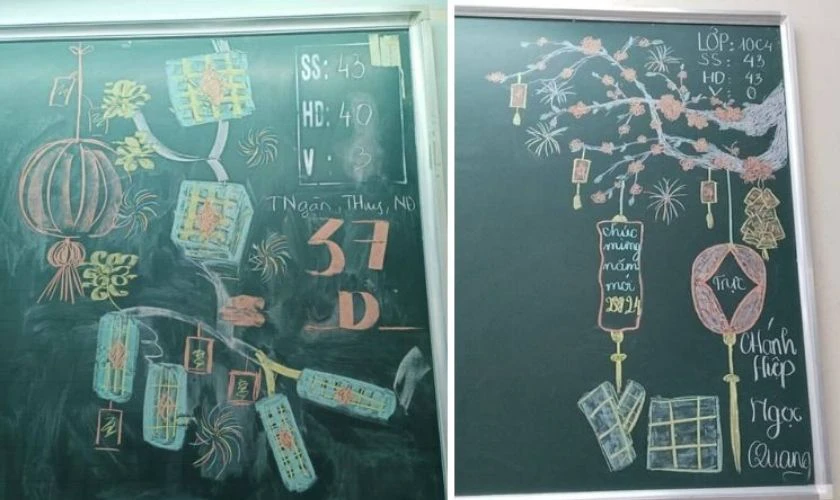 SS: 43
HD: 40
V : 3
TNgân, THuy, NĐ
37
D
LỚP: 10C4
SS : 43
HD : 43
V : 0
chúc
mừng
năm
mới
2024
Trực
Chánh
Hiệp
Ngọc
Quang